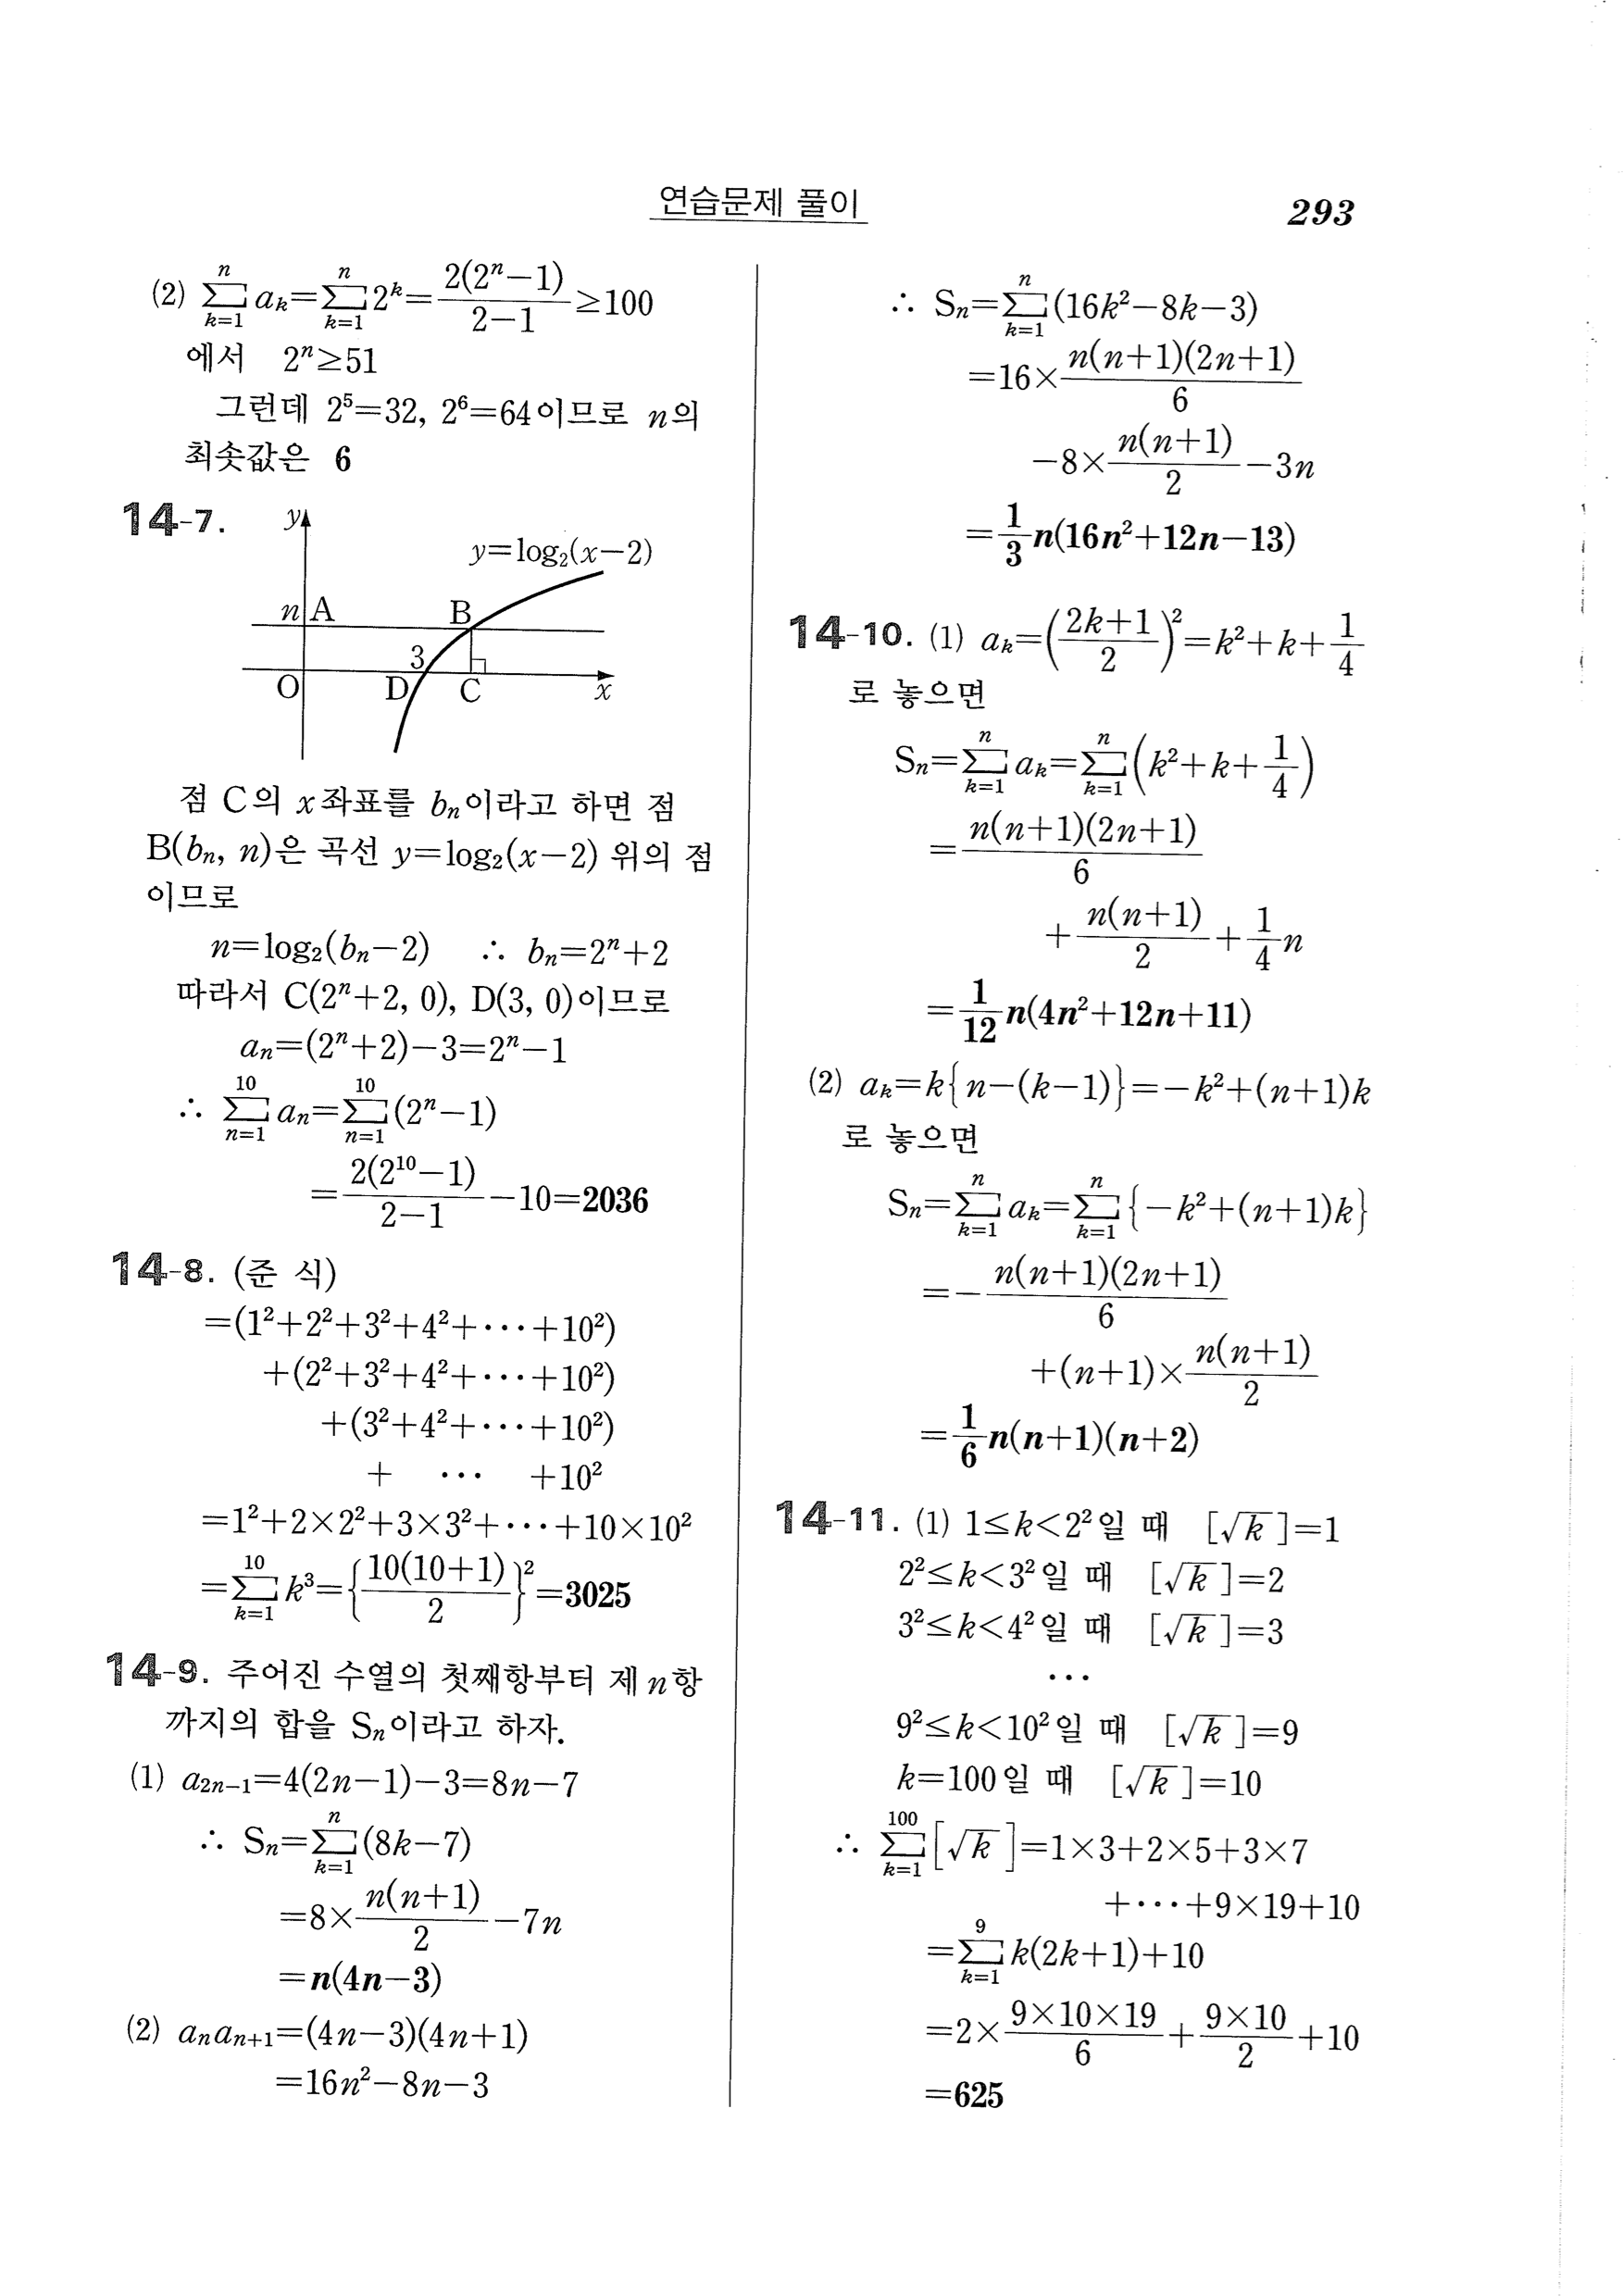 연습문제 풀이
293
(2) $\sum_{k=1}^{n} a_k = \sum_{k=1}^{n} 2^k = \frac{2(2^n-1)}{2-1} \geq 100$
에서 $2^n \geq 51$
그런데 $2^5=32$, $2^6=64$이므로 $n$의
최솟값은 6
14-7.
y
y=log₂(x−2)
n A B
3
O D C x
점 C의 $x$좌표를 $b_n$이라고 하면 점
B($b_n$, $n$)은 곡선 $y=\log_2(x-2)$ 위의 점
이므로
$n=\log_2(b_n-2)$ ∴ $b_n=2^n+2$
따라서 C($2^n+2$, 0), D(3, 0)이므로
$a_n=(2^n+2)-3=2^n-1$
∴ $\sum_{n=1}^{10} a_n = \sum_{n=1}^{10} (2^n-1)$
$= \frac{2(2^{10}-1)}{2-1} - 10 = 2036$
14-8. (준 식)
$=(1^2+2^2+3^2+4^2+\cdots+10^2)$
$+(2^2+3^2+4^2+\cdots+10^2)$
$+(3^2+4^2+\cdots+10^2)$
$+ \cdots +10^2$
$=1^2+2\times2^2+3\times3^2+\cdots+10\times10^2$
$=\sum_{k=1}^{10} k^3 = \left\{\frac{10(10+1)}{2}\right\}^2 = 3025$
14-9. 주어진 수열의 첫째항부터 제 $n$항
까지의 합을 $S_n$이라고 하자.
(1) $a_{2n-1}=4(2n-1)-3=8n-7$
∴ $S_n=\sum_{k=1}^{n}(8k-7)$
$=8\times\frac{n(n+1)}{2}-7n$
$=n(4n-3)$
(2) $a_n a_{n+1}=(4n-3)(4n+1)$
$=16n^2-8n-3$
∴ $S_n=\sum_{k=1}^{n}(16k^2-8k-3)$
$=16\times\frac{n(n+1)(2n+1)}{6}$
$-8\times\frac{n(n+1)}{2}-3n$
$=\frac{1}{3}n(16n^2+12n-13)$
14-10. (1) $a_k=\left(\frac{2k+1}{2}\right)^2=k^2+k+\frac{1}{4}$
로 놓으면
$S_n=\sum_{k=1}^{n}a_k=\sum_{k=1}^{n}\left(k^2+k+\frac{1}{4}\right)$
$=\frac{n(n+1)(2n+1)}{6}$
$+\frac{n(n+1)}{2}+\frac{1}{4}n$
$=\frac{1}{12}n(4n^2+12n+11)$
(2) $a_k=k\{n-(k-1)\}=-k^2+(n+1)k$
로 놓으면
$S_n=\sum_{k=1}^{n}a_k=\sum_{k=1}^{n}\{-k^2+(n+1)k\}$
$=-\frac{n(n+1)(2n+1)}{6}$
$+(n+1)\times\frac{n(n+1)}{2}$
$=\frac{1}{6}n(n+1)(n+2)$
14-11. (1) $1\leq k<2^2$일 때 $[\sqrt{k}]=1$
$2^2\leq k<3^2$일 때 $[\sqrt{k}]=2$
$3^2\leq k<4^2$일 때 $[\sqrt{k}]=3$
$\cdots$
$9^2\leq k<10^2$일 때 $[\sqrt{k}]=9$
$k=100$일 때 $[\sqrt{k}]=10$
∴ $\sum_{k=1}^{100}[\sqrt{k}]=1\times3+2\times5+3\times7$
$+\cdots+9\times19+10$
$=\sum_{k=1}^{9}k(2k+1)+10$
$=2\times\frac{9\times10\times19}{6}+\frac{9\times10}{2}+10$
$=625$